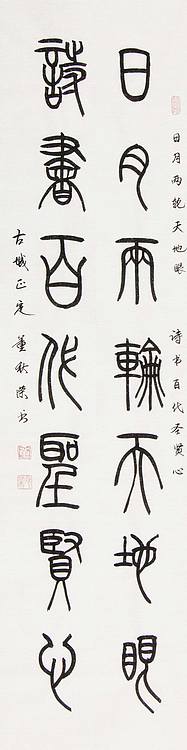 日月两轮天地眼 诗书百代圣贤心
日月兩輪天地眼
詩書百代聖賢心
古城正定 董秋荣书